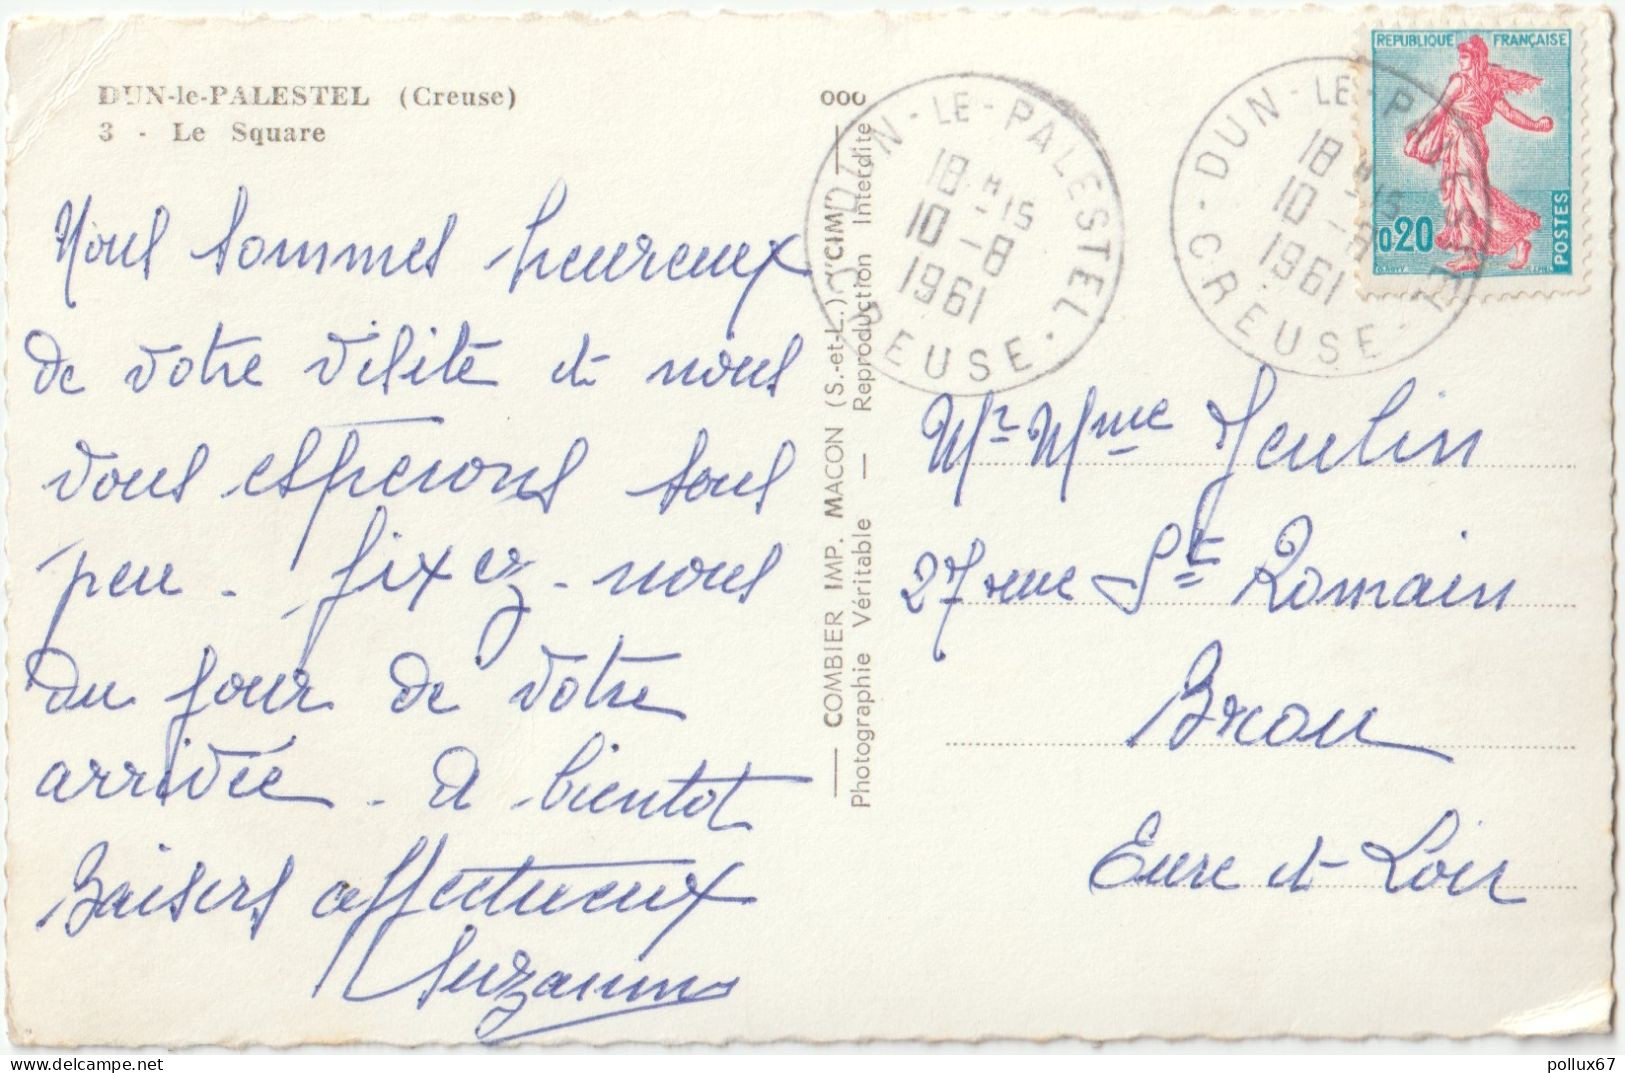 DUN-le-PALESTEL (Creuse)
3 - Le Square
Nous sommes heureux
de votre visite et nous
vous esperons sous
peu - fixez-nous
du jour de votre
arrivée - A bientot
Baisers affectueux
Suzanne
COMBIER IMP. MACON (S.-et-L.) "CIM"
Photographie Véritable — Reproduction Interdite
000
DUN-LE-PALESTEL
18 H 15
10 - 8
1961
CREUSE
DUN-LE-PALESTEL
18 H 15
10 - 8
1961
CREUSE
REPUBLIQUE FRANÇAISE
0,20
POSTES
Mr Mme Jeulin
27 rue St Romain
Brou
Eure et Loir
delcampe.net
pollux67